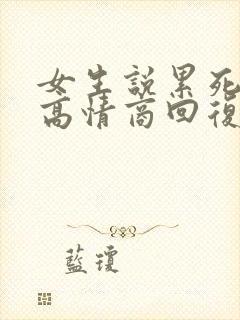 女生說累死
高情商回復
藍瓊